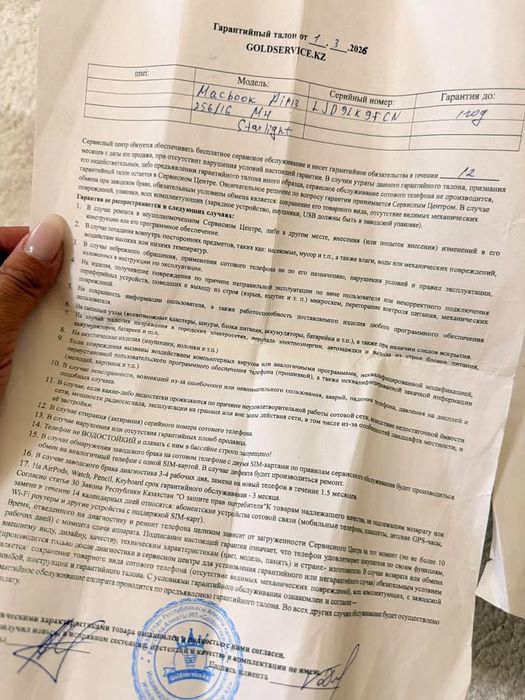 Гарантийный талон от 1.3.2026
GOLDSERVICE.KZ
imei: Модель: Серийный номер: Гарантия до:
Macbook Air 13 LJD9LK9FCN 1 год
256/16 M4
Starlight
Сервисный центр обязуется обеспечивать бесплатное сервисное обслуживание и несет гарантийное обязательства в течении 12
месяцев с даты его продажи, при отсутствии нарушения условий настоящей гарантии. В случаи утраты данного гарантийного талона, признания
его недействительным, либо предъявлении гарантийного талона иного образца, сервисное обслуживание сотового телефона не производится,
гарантийный талон остается в Сервисном Центре. Окончательное решение по вопросу гарантии принимается Сервисным Центром. В случае
обмена при заводском браке, обязательным условием обмена является: сохранение его товарного вида, отсутствие видимых механических
повреждений, упаковки, всех комплектующих (зарядное устройство, наушники, USB должны быть в заводской упаковке).
Гарантия не распространяется в следующих случаях:
1. В случае ремонта в неуполномоченном Сервисном Центре, либо в другом месте, внесения (или попыток внесения) изменений в его
конструкцию или его программное обеспечение.
2. В случае попадания вовнутрь посторонних предметов, таких как: насекомые, мусор и т.п., а также влаги, воды или механических повреждений,
воздействия высоких или низких температур.
3. В случае небрежного обращения, применения сотового телефона не по его назначению, нарушения условий и правил эксплуатации,
изложенных в инструкции по эксплуатации.
4. На изделия, получившие повреждения по причине неправильной эксплуатации по вине пользователя или некорректного подключения
периферийных устройств, поведших к выходу из строя (взрыв, вздутие и т. п.) микросхем, перегорание контроля питания, механических
повреждений.
5. На сохранность информации пользователя, а также работоспособность поставляемого изделия любого программного обеспечения
пользователя.
6. На сменные узлы (всевозможные адаптеры, шнуры, блоки питания, аккумуляторы, батарейки и т.п.), а также при наличии следов вскрытия.
7. На случаи напряжения в городских электросетях, перепада электроэнергии, автозарядки и выхода из строя блоков питания,
аккумуляторов, батареек и т.п.
8. На акустические изделия (наушники, колонки и т.п.)
9. Если повреждения вызваны воздействием компьютерных вирусов или аналогичными программами, неквалифицированной модификацией,
переустановкой пользовательского программного обеспечения телефона (прошивкой), а также неквалифицированной закачкой информации
(мелодий, картинок и т.п.)
10. В случае неисправности, возникшей из-за ошибочного или невнимательного пользования, аварий, падения телефона, давления на дисплей и
подобных случаев.
11. В случае, если какие-либо недостатки проявляются по причине неудовлетворительной работы сотовой сети, вследствие недостаточной ёмкости
сети, мощности радиосигнала, эксплуатации на границе или вне зоны действия сети, в том числе из-за особенностей ландшафта местности, и
её застройки
12. В случае стирания (затирания) серийного номера сотового телефона.
13. В случае нарушения или отсутствия гарантийных пломб продавца.
14. Телефон не ВОДОСТОЙКИЙ и плавать с ним в бассейне строго запрещено!
15. В случае обнаружения заводского брака на сотовом телефоне с двумя SIM-картами по правилам сервисного обслуживания будет производиться
обмен на аналогичный телефон с одной SIM-картой. В случае дефекта будет производиться ремонт.
16. В случае заводского брака диагностика 3-4 рабочих дня, замена на новый телефон в течение 1.5 месяцев.
17. На AirPods, Watch, Pencil, Keyboard срок гарантийного обслуживания - 3 месяца.
Согласно статье 30 Закона Республики Казахстан "О защите прав потребителя" К товарам надлежащего качества, не подлежащим возврату или
замене в течение 14 календарных дней относятся: абонентские устройства сотовой связи (мобильные телефоны, планшеты, детские GPS-часы,
Wi-Fi роутеры и другие устройства с поддержкой SIM-карт).
Время, отведенного на диагностику и ремонт телефона целиком зависит от загруженности Сервисного Центра на тот момент (но не более 10
рабочих дней) с момента сдачи аппарата. Подписание настоящей гарантии означает, что телефон удовлетворяет покупателя по своим функциям,
внешнему виду, дизайну, качеству, техническим характеристикам (цвет, модель, память) и стране- изготовления. В случае возврата или обмена
(производится только после диагностики в сервисном центре для установления гарантийного или негарантийного случая) обязательным условием
является: сохранение товарного вида сотового телефона (отсутствие видимых механических повреждений), их комплектующих, с заводской
пломбой, инструкции и гарантийного талона. С условиями гарантийного обслуживания ознакомлен и согласен –
Гарантийное обслуживание аппарата проводится по предъявлению гарантийного талона. Во всех других случаях обслуживание будет осуществлено
за плату.
характеристиками товара ознакомлен и полностью с ними согласен.
получил в исправном состоянии, претензий к качеству и комплектации не имею
Подпись клиента
Goldservice.kz